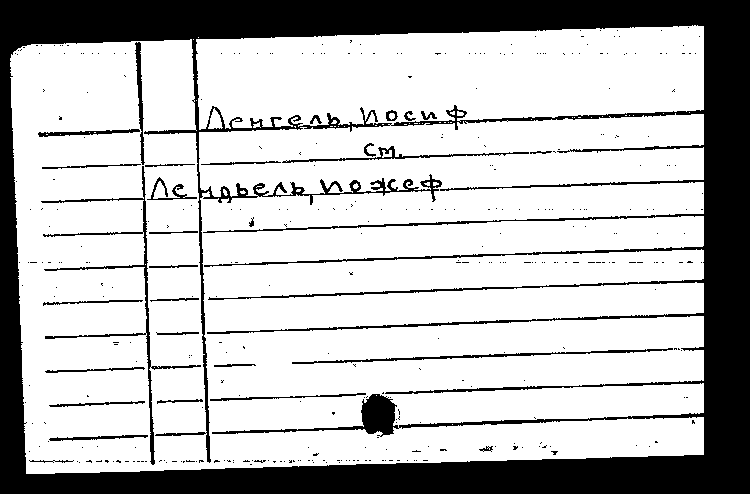 Ленгель, Иосиф
см.
Лендьель, Йожеф